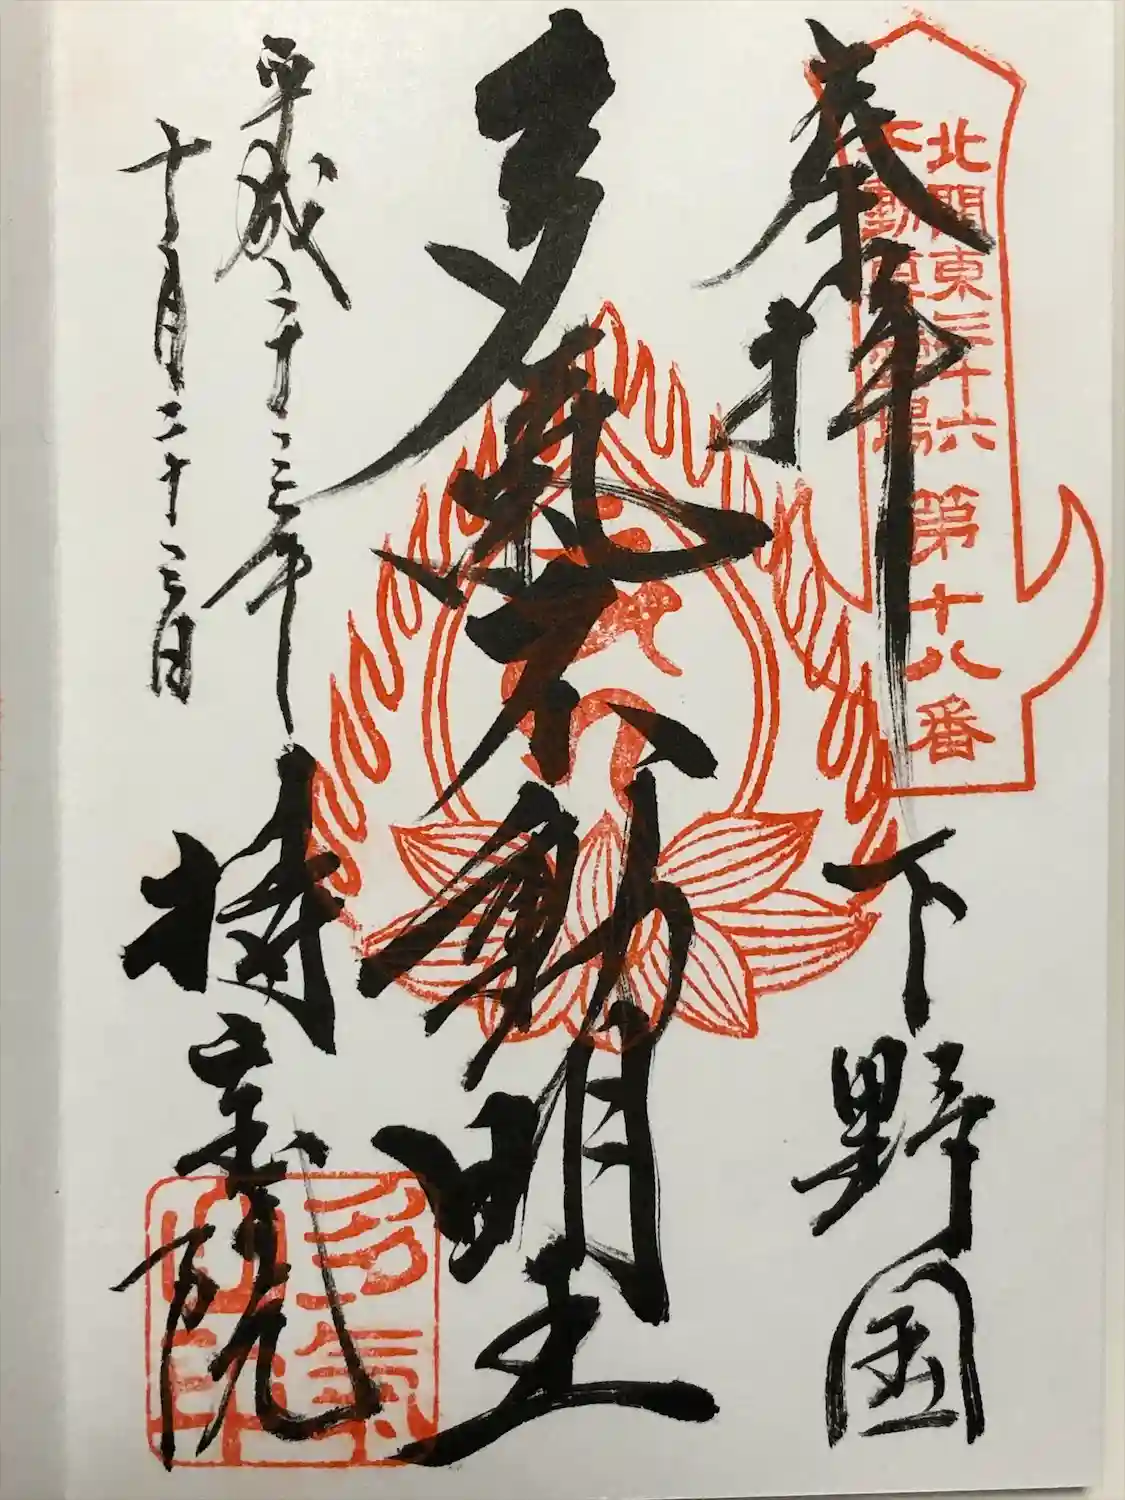 北関東三十六
不動尊霊場
第十八番
奉拝
下野国
多氣不動明王
平成二十三年
十月二十三日
持宝院
多氣